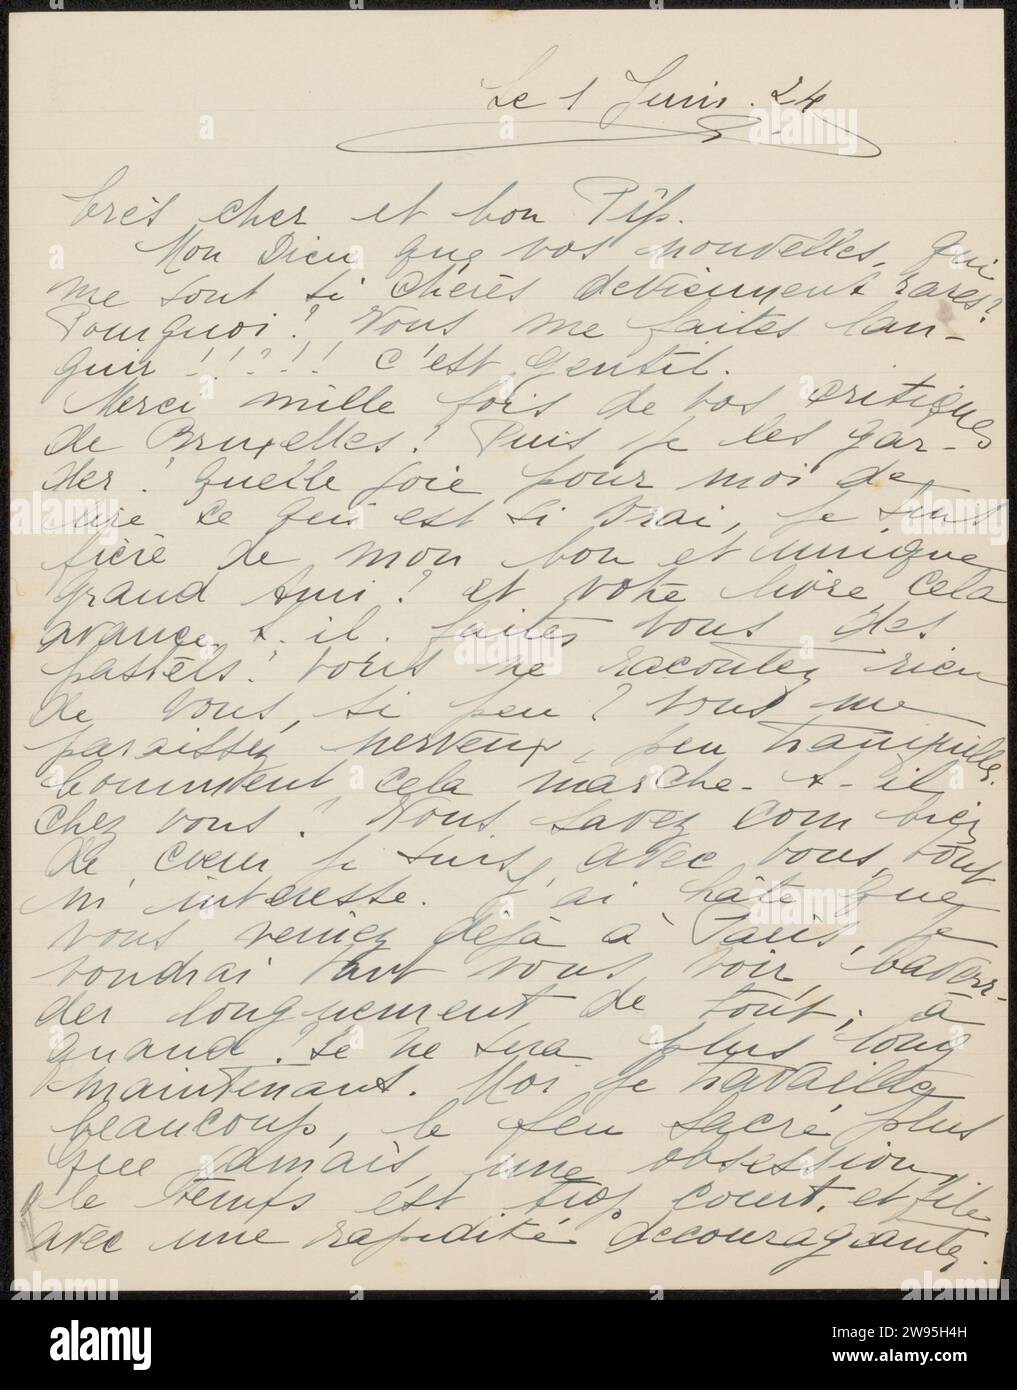 Le 1 Juin. 24
très cher et bon Pip.
Mon Dieu que vos nouvelles, qui
me sont si chères deviennent rares?
Pourquoi? Vous me faites lan-
guir!!?!! c'est gentil.
Merci mille fois de vos critiques
de Bruxelles! Puis je les gar-
der? quelle joie pour moi de
lire ce qui est si vrai, je suis
fière de mon bon et unique
grand Ami? et votre livre cela
avance t-il. faites vous des
pastels? vous ne racontez rien
de vous, si peu? vous me
paraissez nerveux, peu tranquille.
Comment cela marche-t-il
chez vous? Vous savez combien
de cœur je suis, avec vous, tout
m'intéresse. J'ai hâte que
vous veniez déjà à Paris, je
voudrai tant vous voir, bavar-
der longuement de tout; à
quand? Ce ne sera plus long
maintenant. Moi je travaille
beaucoup, le feu sacré plus
que jamais, une obsession,
le temps est trop court, et file
avec une rapidité décourageante.
alamy
2W95H4H